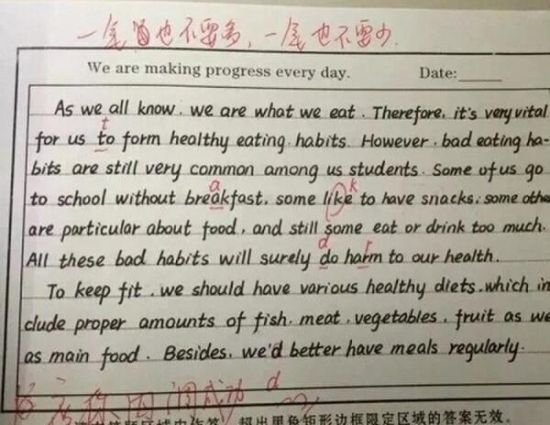 一定也不要多,一定也不要少.
We are making progress every day. Date:
As we all know, we are what we eat. Therefore, it's very vital
t
for us to form healthy eating habits. However, bad eating ha-
bits are still very common among us students. Some of us go
a k
to school without breakfast, some like to have snacks, some othe
are particular about food, and still some eat or drink too much.
d r
All these bad habits will surely do harm to our health.
To keep fit, we should have various healthy diets, which in
clude proper amounts of fish, meat, vegetables, fruit as we
as main food. Besides, we'd better have meals regularly.
成功 d
超出黑色矩形边框限定区域的答案无效。